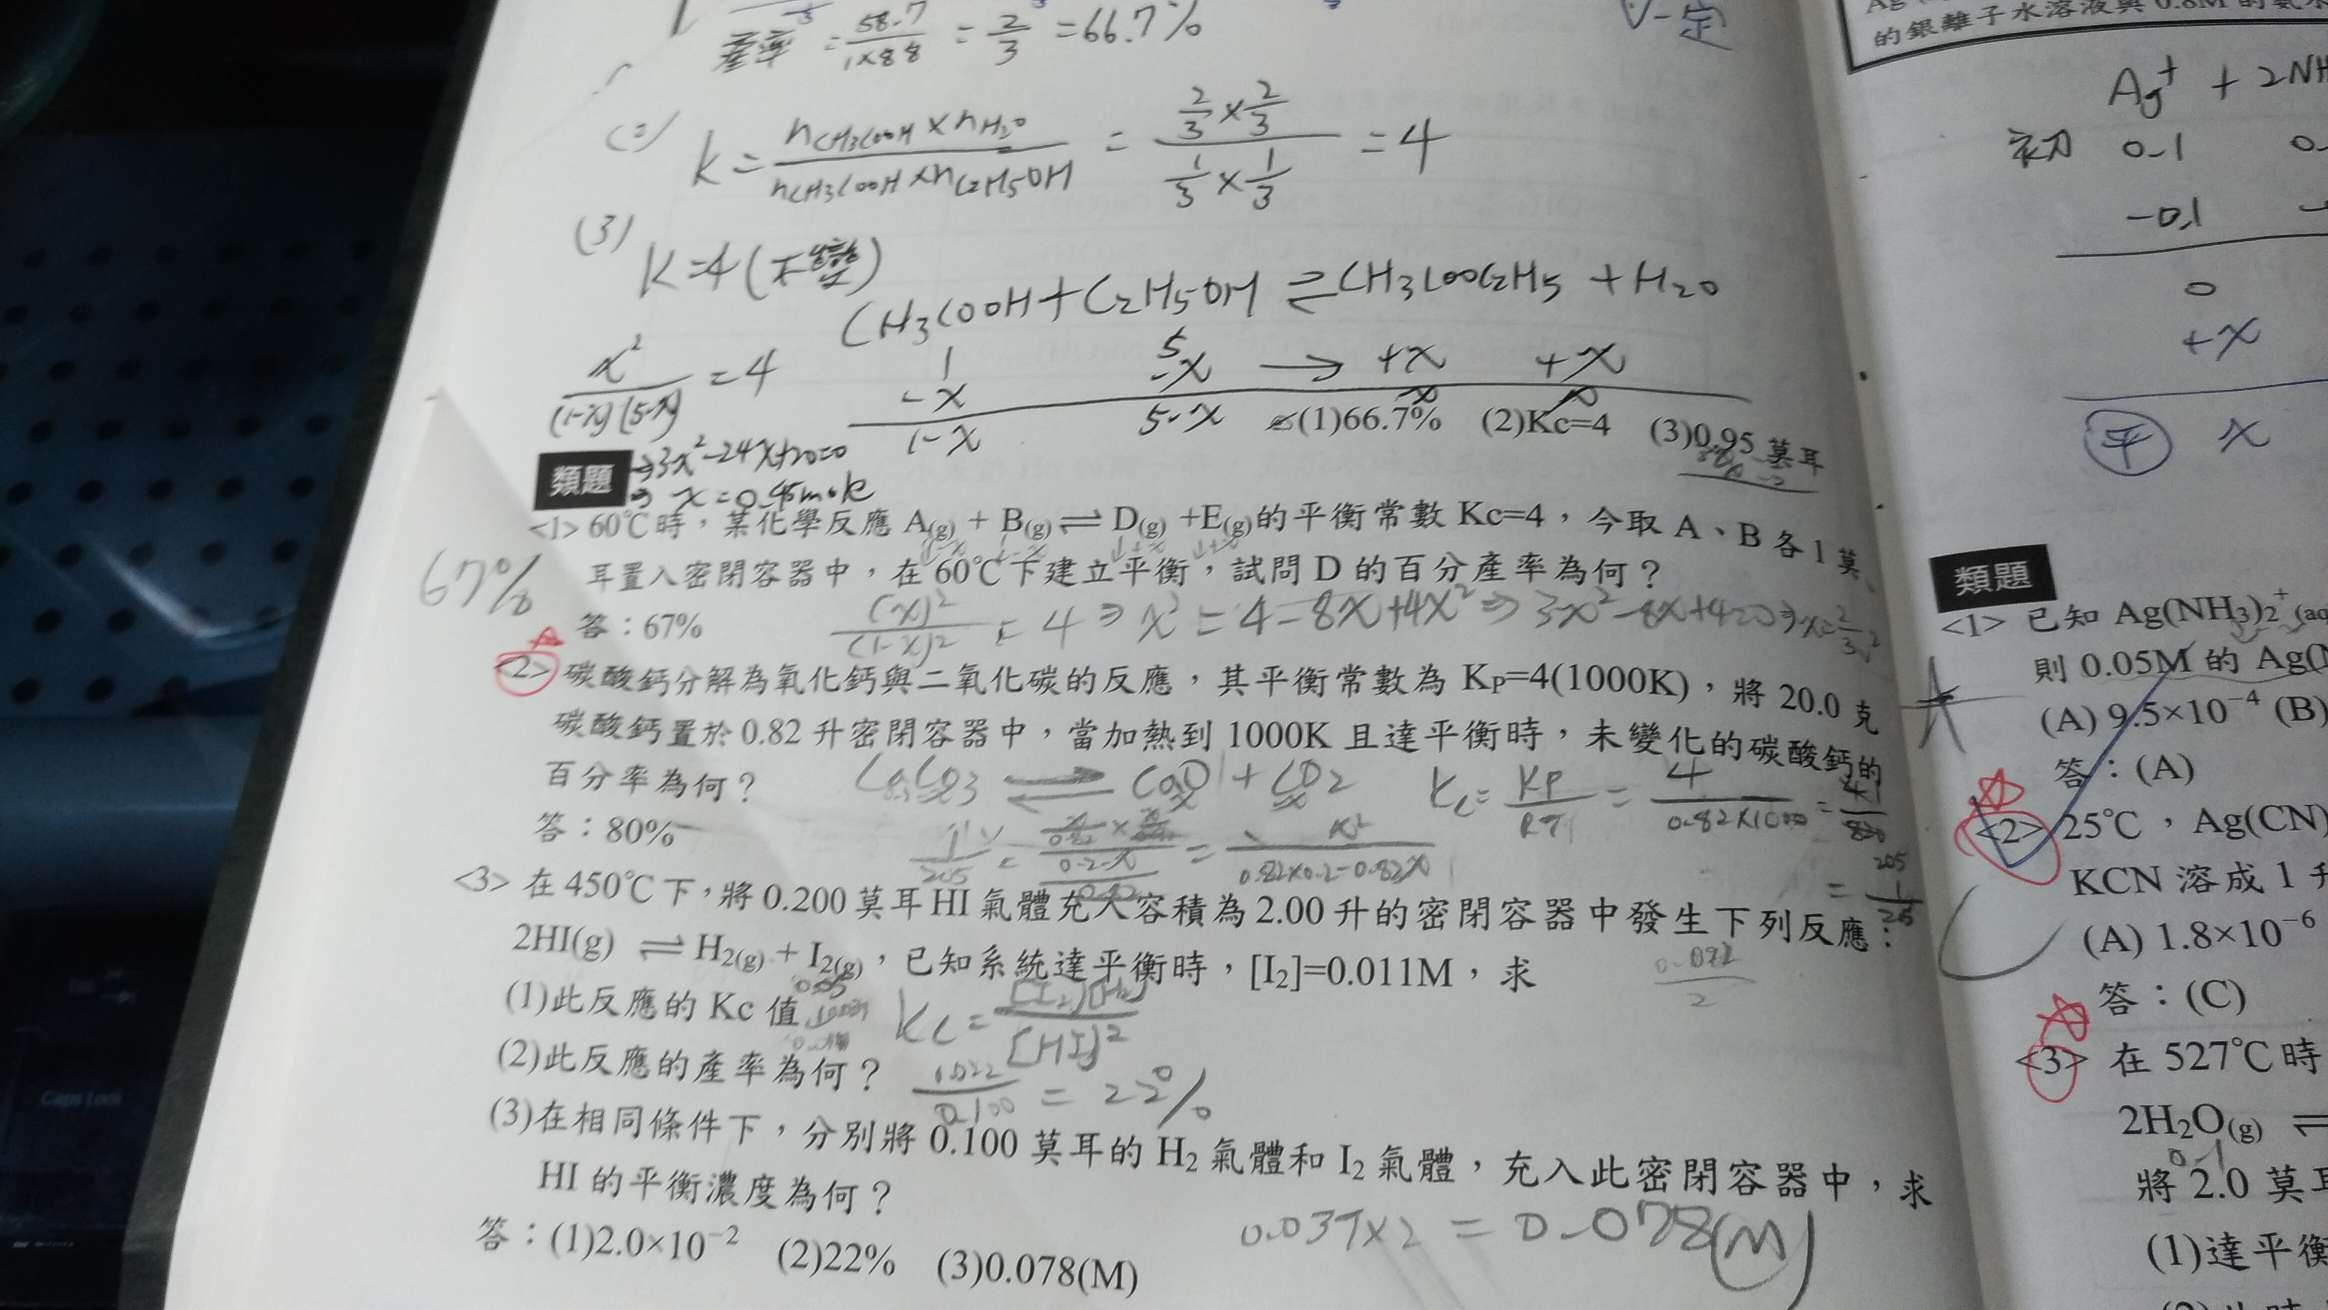 產率 = 58.7/1×88 = 2/3 = 66.7%
(2) K = nCH3COOH × nH2O / nCH3COOH × nC2H5OH = 2/3 × 2/3 / 1/3 × 1/3 = 4
(3) K=4(不變)
CH3COOH + C2H5OH ⇌ CH3COOC2H5 + H2O
x²/(1-x)(5-x) = 4
1 5
-x -x → +x +x
1-x 5-x x x
(1)66.7% (2)Kc=4 (3)0.95 莫耳
類題
⇒3x²-24x+20=0
⇒ x=0.95mole
<1> 60℃時，某化學反應 A(g) + B(g) ⇌ D(g) +E(g)的平衡常數 Kc=4，今取 A、B 各 1 莫
耳置入密閉容器中，在 60℃下建立平衡，試問 D 的百分產率為何？
67%
答：67%
(x)²/(1-x)² = 4 ⇒ x² = 4-8x+4x² ⇒ 3x²-8x+4=0 ⇒ x=2/3
<2> 碳酸鈣分解為氧化鈣與二氧化碳的反應，其平衡常數為 KP=4(1000K)，將 20.0 克
碳酸鈣置於 0.82 升密閉容器中，當加熱到 1000K 且達平衡時，未變化的碳酸鈣的
百分率為何？
CaCO3 ⇌ CaO + CO2
Kc = KP/RT = 4/0.82×1000
答：80%
<3> 在 450℃下，將 0.200 莫耳 HI 氣體充入容積為 2.00 升的密閉容器中發生下列反應：
2HI(g) ⇌ H2(g) + I2(g)，已知系統達平衡時，[I2]=0.011M，求
(1)此反應的 Kc 值
Kc = [I2][H2]/[HI]²
(2)此反應的產率為何？
0.022/0.100 = 22%
(3)在相同條件下，分別將 0.100 莫耳的 H2 氣體和 I2 氣體，充入此密閉容器中，求
HI 的平衡濃度為何？
答：(1)2.0×10⁻² (2)22% (3)0.078(M)
×2 = 0.078(M)
V一定
的銀離子水溶液與 0.8M 的氨水
Ag⁺ + 2NH
初 0.1
-0.1
0
+x
平 x
類題
<1> 已知 Ag(NH3)2⁺(aq
則 0.05M 的 Ag(
(A) 9.5×10⁻⁴ (B)
答：(A)
<2> 25℃，Ag(CN)
KCN 溶成 1 升
(A) 1.8×10⁻⁶
答：(C)
<3> 在 527℃時
2H2O(g) ⇌
將 2.0 莫耳
(1)達平衡
Caps Lock